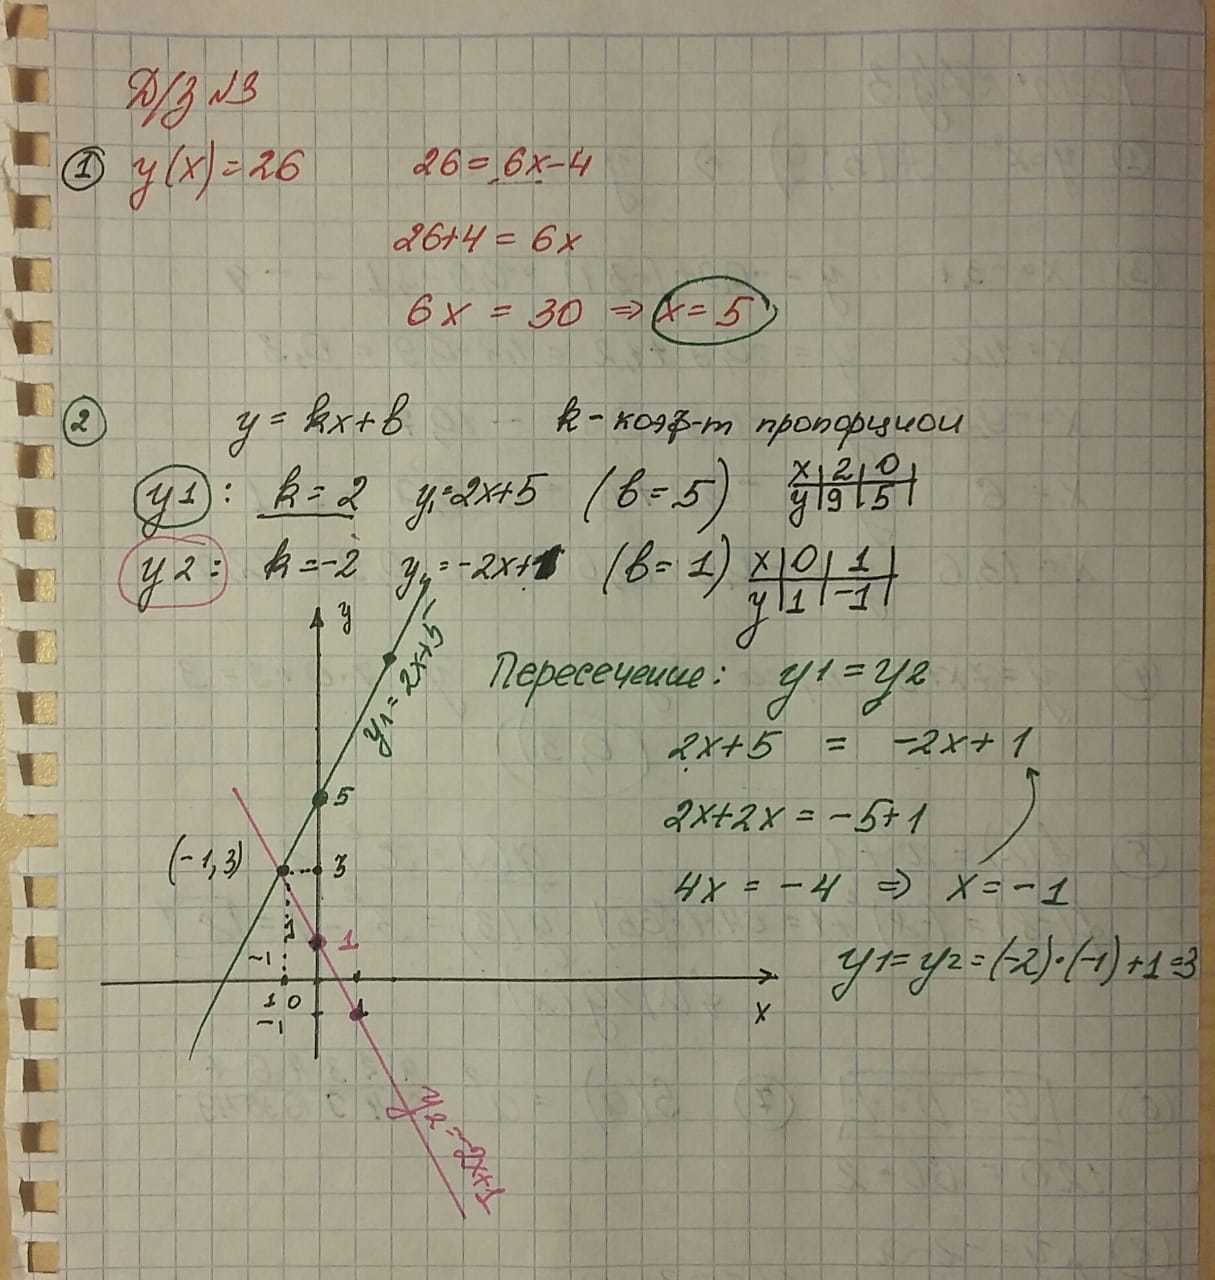 Д/З №3
① y(x)=26 26=6x-4
26+4=6x
6x = 30 ⇒ x=5
② y=kx+b k-коэф-т пропорциои
y1: k=2 y₁=2x+5 (b=5) x|2|0|
y|9|5|
y2: k=-2 y₂=-2x+1 (b=1) x|0|1|
y|1|-1|
y
y₁=2x+5
Пересечение: y1=y2
2x+5 = -2x+1
5
2x+2x=-5+1
(-1,3) 3
4x = -4 ⇒ x=-1
1
-1
y1=y2=(-2)·(-1)+1=3
1 0 1 x
-1
y2=-2x+1